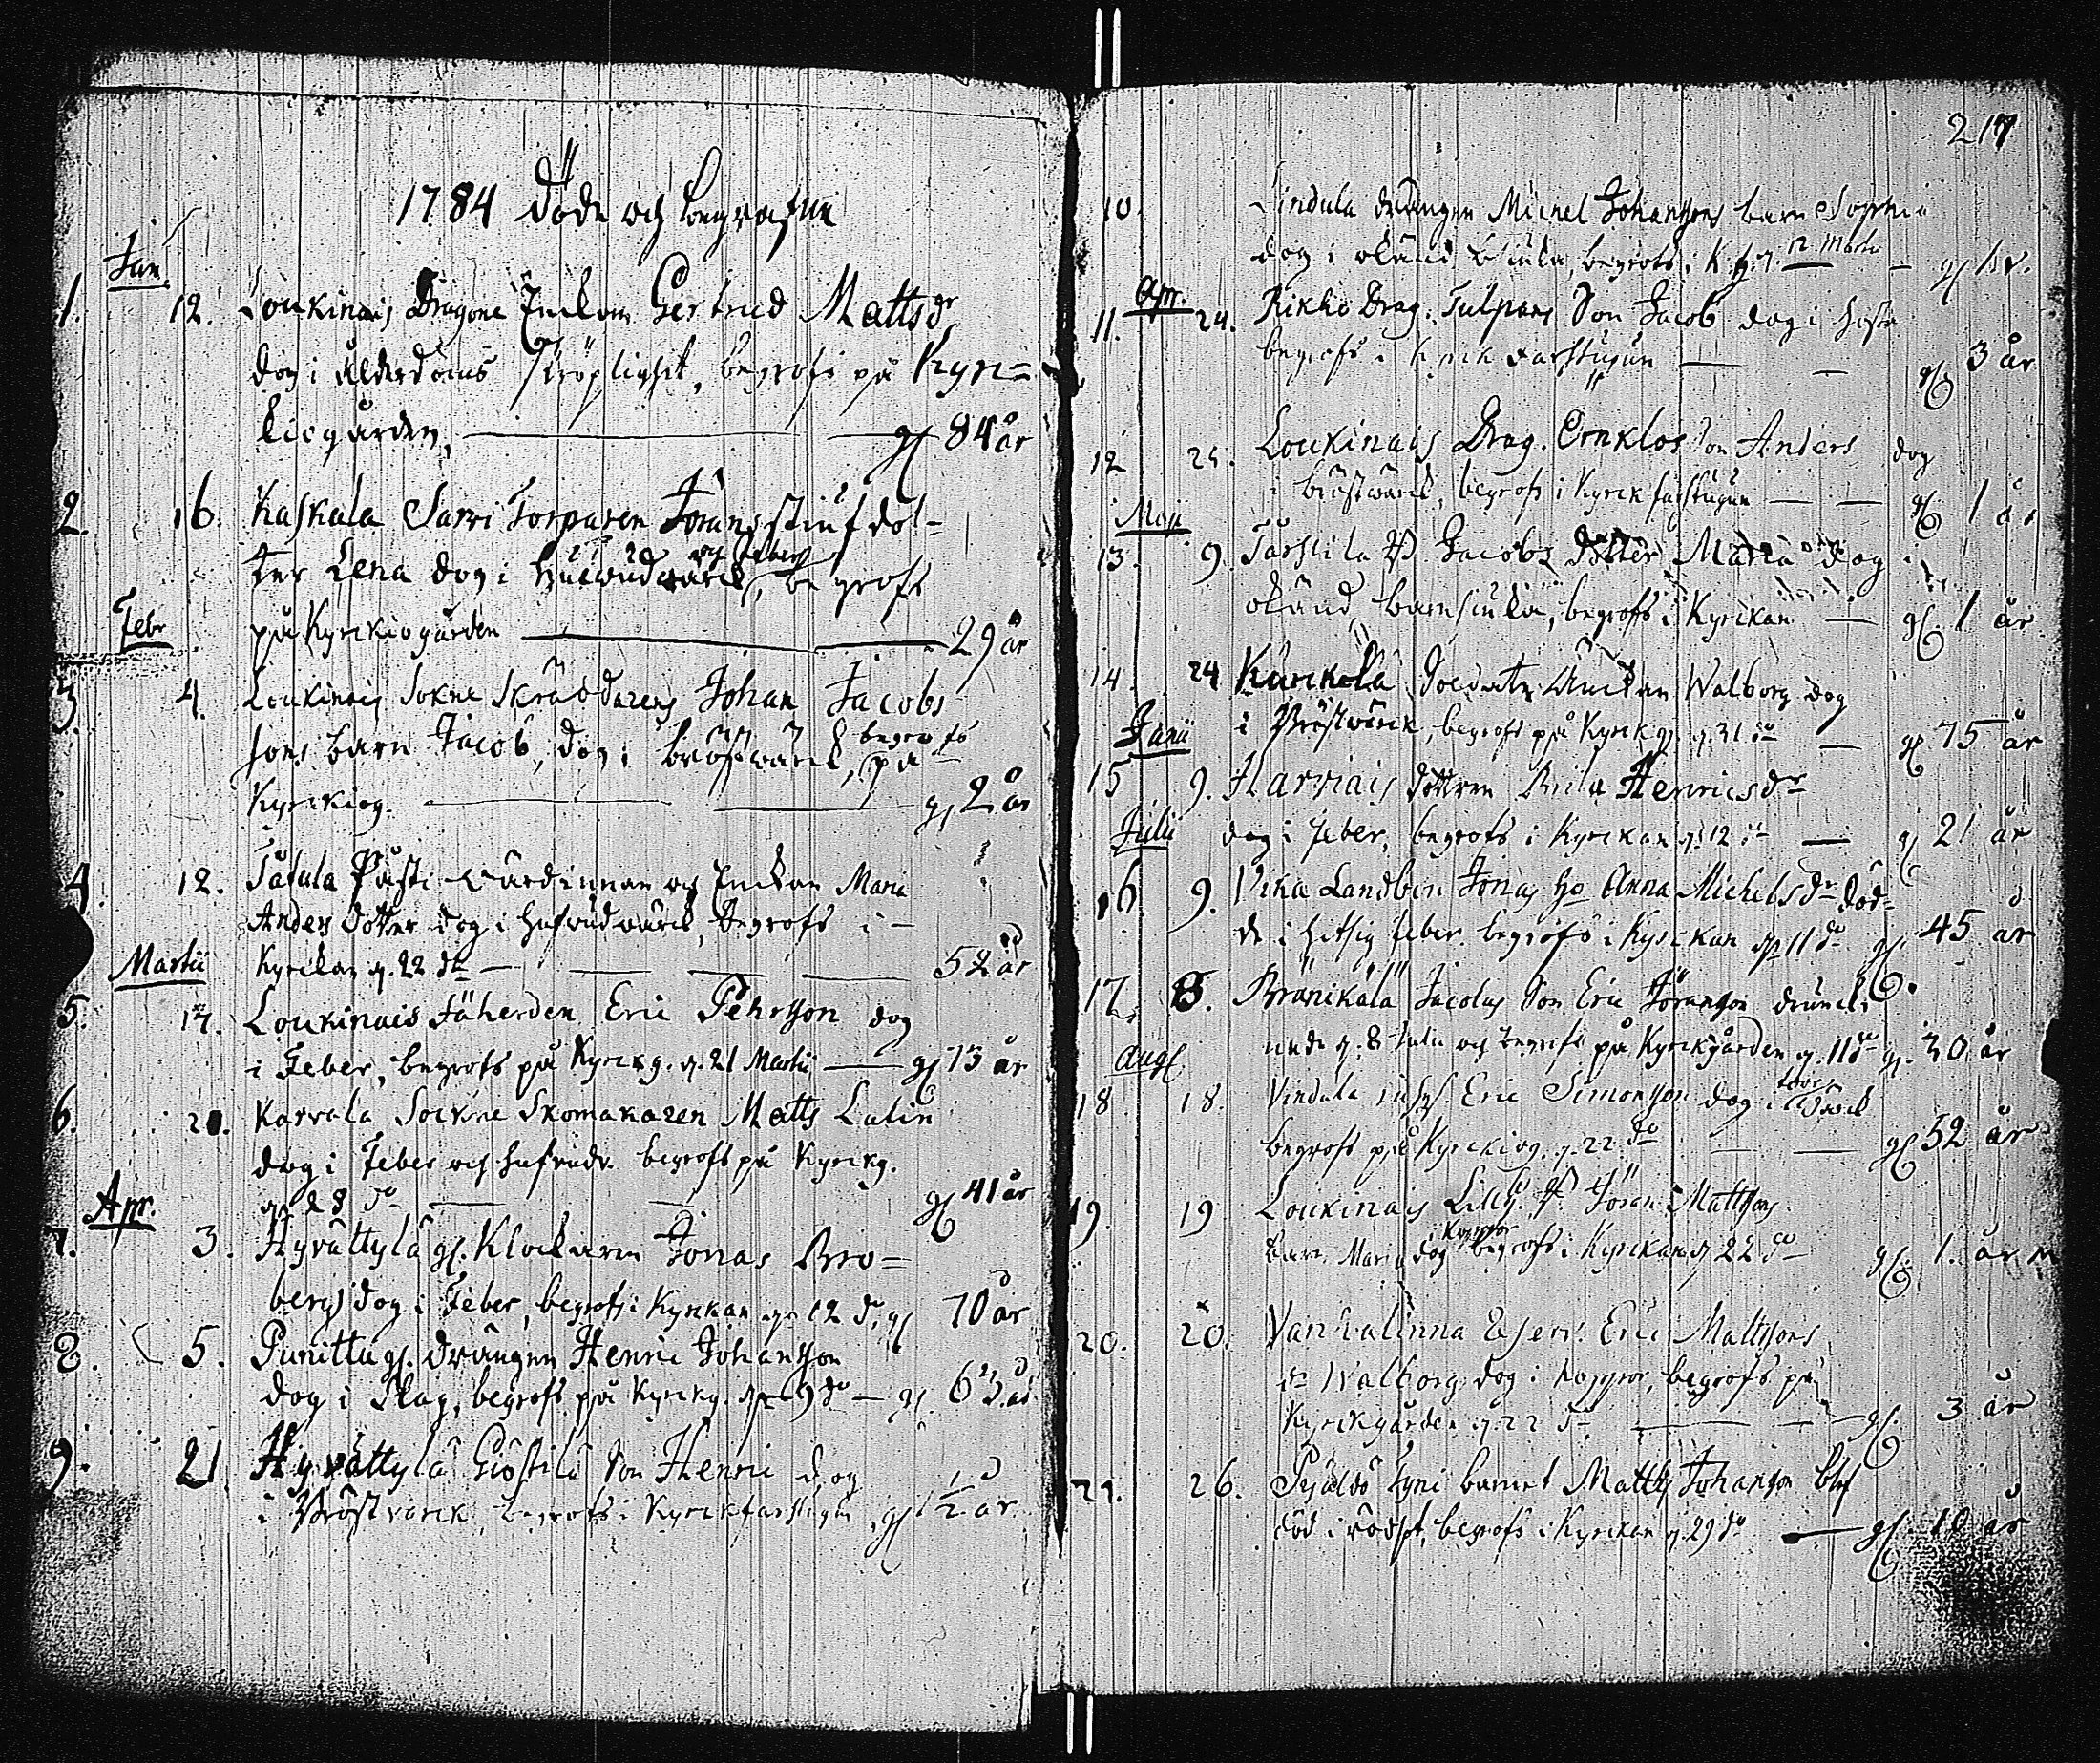 1784 Döde och begrafne
Jan.
1. 12. Loukinais Dragone Enkan Gertrud Mattsdr
dog i ålderdoms skröplighet, begrofs på Kyr=
kiogården, gl 84 år
2. 16. Kaskala Sarri Torparen Jörans stiufdot-
ter Lena dog i hufwudwärk och feber, begrofs
på Kyrkiogården 29 år
Febr
3. 4. Loukinais Sokne Skräddarens Johan Jacobs
sons barn Jacob, dog i bröstwärk, begrofs på
Kyrkiog. gl 2 år
4. 12. Tåtula Påsti wärdinnan och Enkan Maria
Anders dotter dog i hufwudwärk, begrofs i
Kyrkan d. 22 do 52 år
Martii
5. 17. Loukinais Fäherden Eric Pehrsson dog
i Feber, begrofs på Kyrkg. d. 21 Martii gl 73 år
6. 20. Karvala Sockne Skomakaren Matts Lulin
dog i Feber och hufvudv. begrofs på Kyrkg.
d. 28 do gl 41 år
Apr.
7. 3. Hyvättylä gl. Klockaren Jonas Bro=
berg dog i Feber, begrofs i Kyrkan d. 12 do gl 70 år
8. 5. Punittu gl. drängen Henric Johansson
dog i Slag, begrofs på Kyrkg. d. 9 do gl. 63 år
9. 21 Hyvättylä Giöstilä Son Henric dog
i Bröstvärk, begrofs i Kyrkfarstugu gl 1/2 år
217
10 Lindula drängen Michel Johanssons barn Sophia
dog i okänd siuka, begrofs i K. g. Martii gl
Apr.
11. 24. Rikko Drag. Tulpans Son Jacob dog i hosta
begrofs i Kyrk farstugun gl 3 år
12 25. Loukinais Drag. Ornklos son Anders dog
i bröstwärk, begrofs i Kyrk farstugun gl 1 år
Maji
13. 9. Tarstila Jacobs dotter Maria dog i
okänd barnsiuka, begrofs i Kyrkan gl. 1 år
14. 24 Kurckola Soldate Änkan Walborg dog
i Bröstwärk, begrofs på Kyrkg. d. 31 do gl 75 år
Junii
15 9. Harviais dottren Henricsdr
dog i Feber, begrofs i Kyrckan d. 12 do gl 21 år
Julii
16. 9. Vika Landbon Jonas Ho Anna Michelsdr död=
de i hitsig Feber. begrofs i Kyrckan d. 11 do gl 45 år
17. 8. Bränikälä Jacolas Son Eric Jöransson drunck=
nade d. 8 Julii och begrofs på Kyrckgården d. 11 do gl. 30 år
Aug
18 18. Vindala inhys. Eric Simonsson dog i
begrofs på Kyrckiog. d. 22 do gl 52 år
19. 19 Loukinais Lilly Jöran Mattsons
barn Maria dog i Koppor begrofs i Kyrckan d. 22 do gl. 1. år
20. 20. Vanhalinna Eric Mattssons
dr Walborg dog i koppor, begrofs på
Kyrckgården d. 22 do gl. 3 år
21. 26. barnet Matths Johansson blef
död i rödsot, begrofs i Kyrckan d. 29 do gl. 10 år